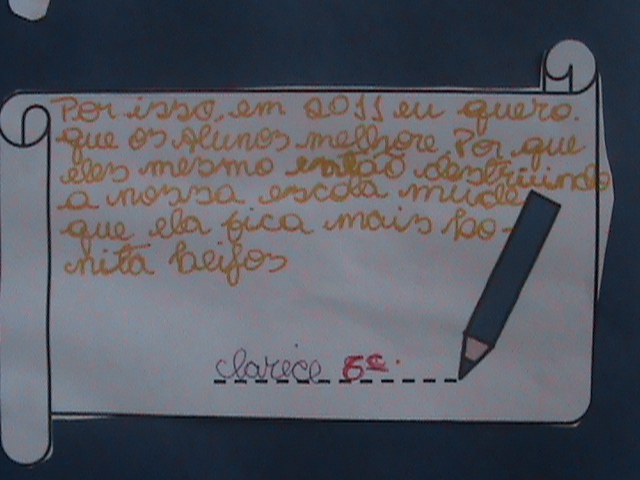 Por isso, em 2011 eu quero.
que os Alunos melhore. Por que
eles mesmo estão destruindo
a nossa escola mude
que ela fica mais bo-
nita beijos
clarice 5ª.